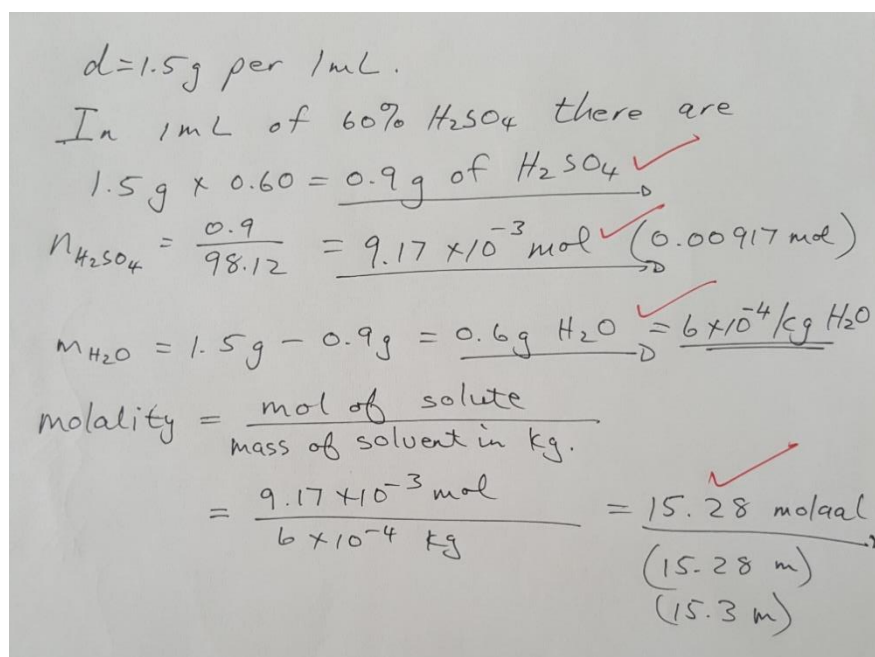 d=1.5g per 1mL.
In 1mL of 60% H₂SO₄ there are
1.5g × 0.60 = 0.9g of H₂SO₄
n H₂SO₄ = 0.9 / 98.12 = 9.17 ×10⁻³ mol (0.00917 mol)
m H₂O = 1.5g - 0.9g = 0.6g H₂O = 6×10⁻⁴ kg H₂O
molality = mol of solute / mass of solvent in kg.
= 9.17 ×10⁻³ mol / 6 ×10⁻⁴ kg = 15.28 molaal
(15.28 m)
(15.3 m)